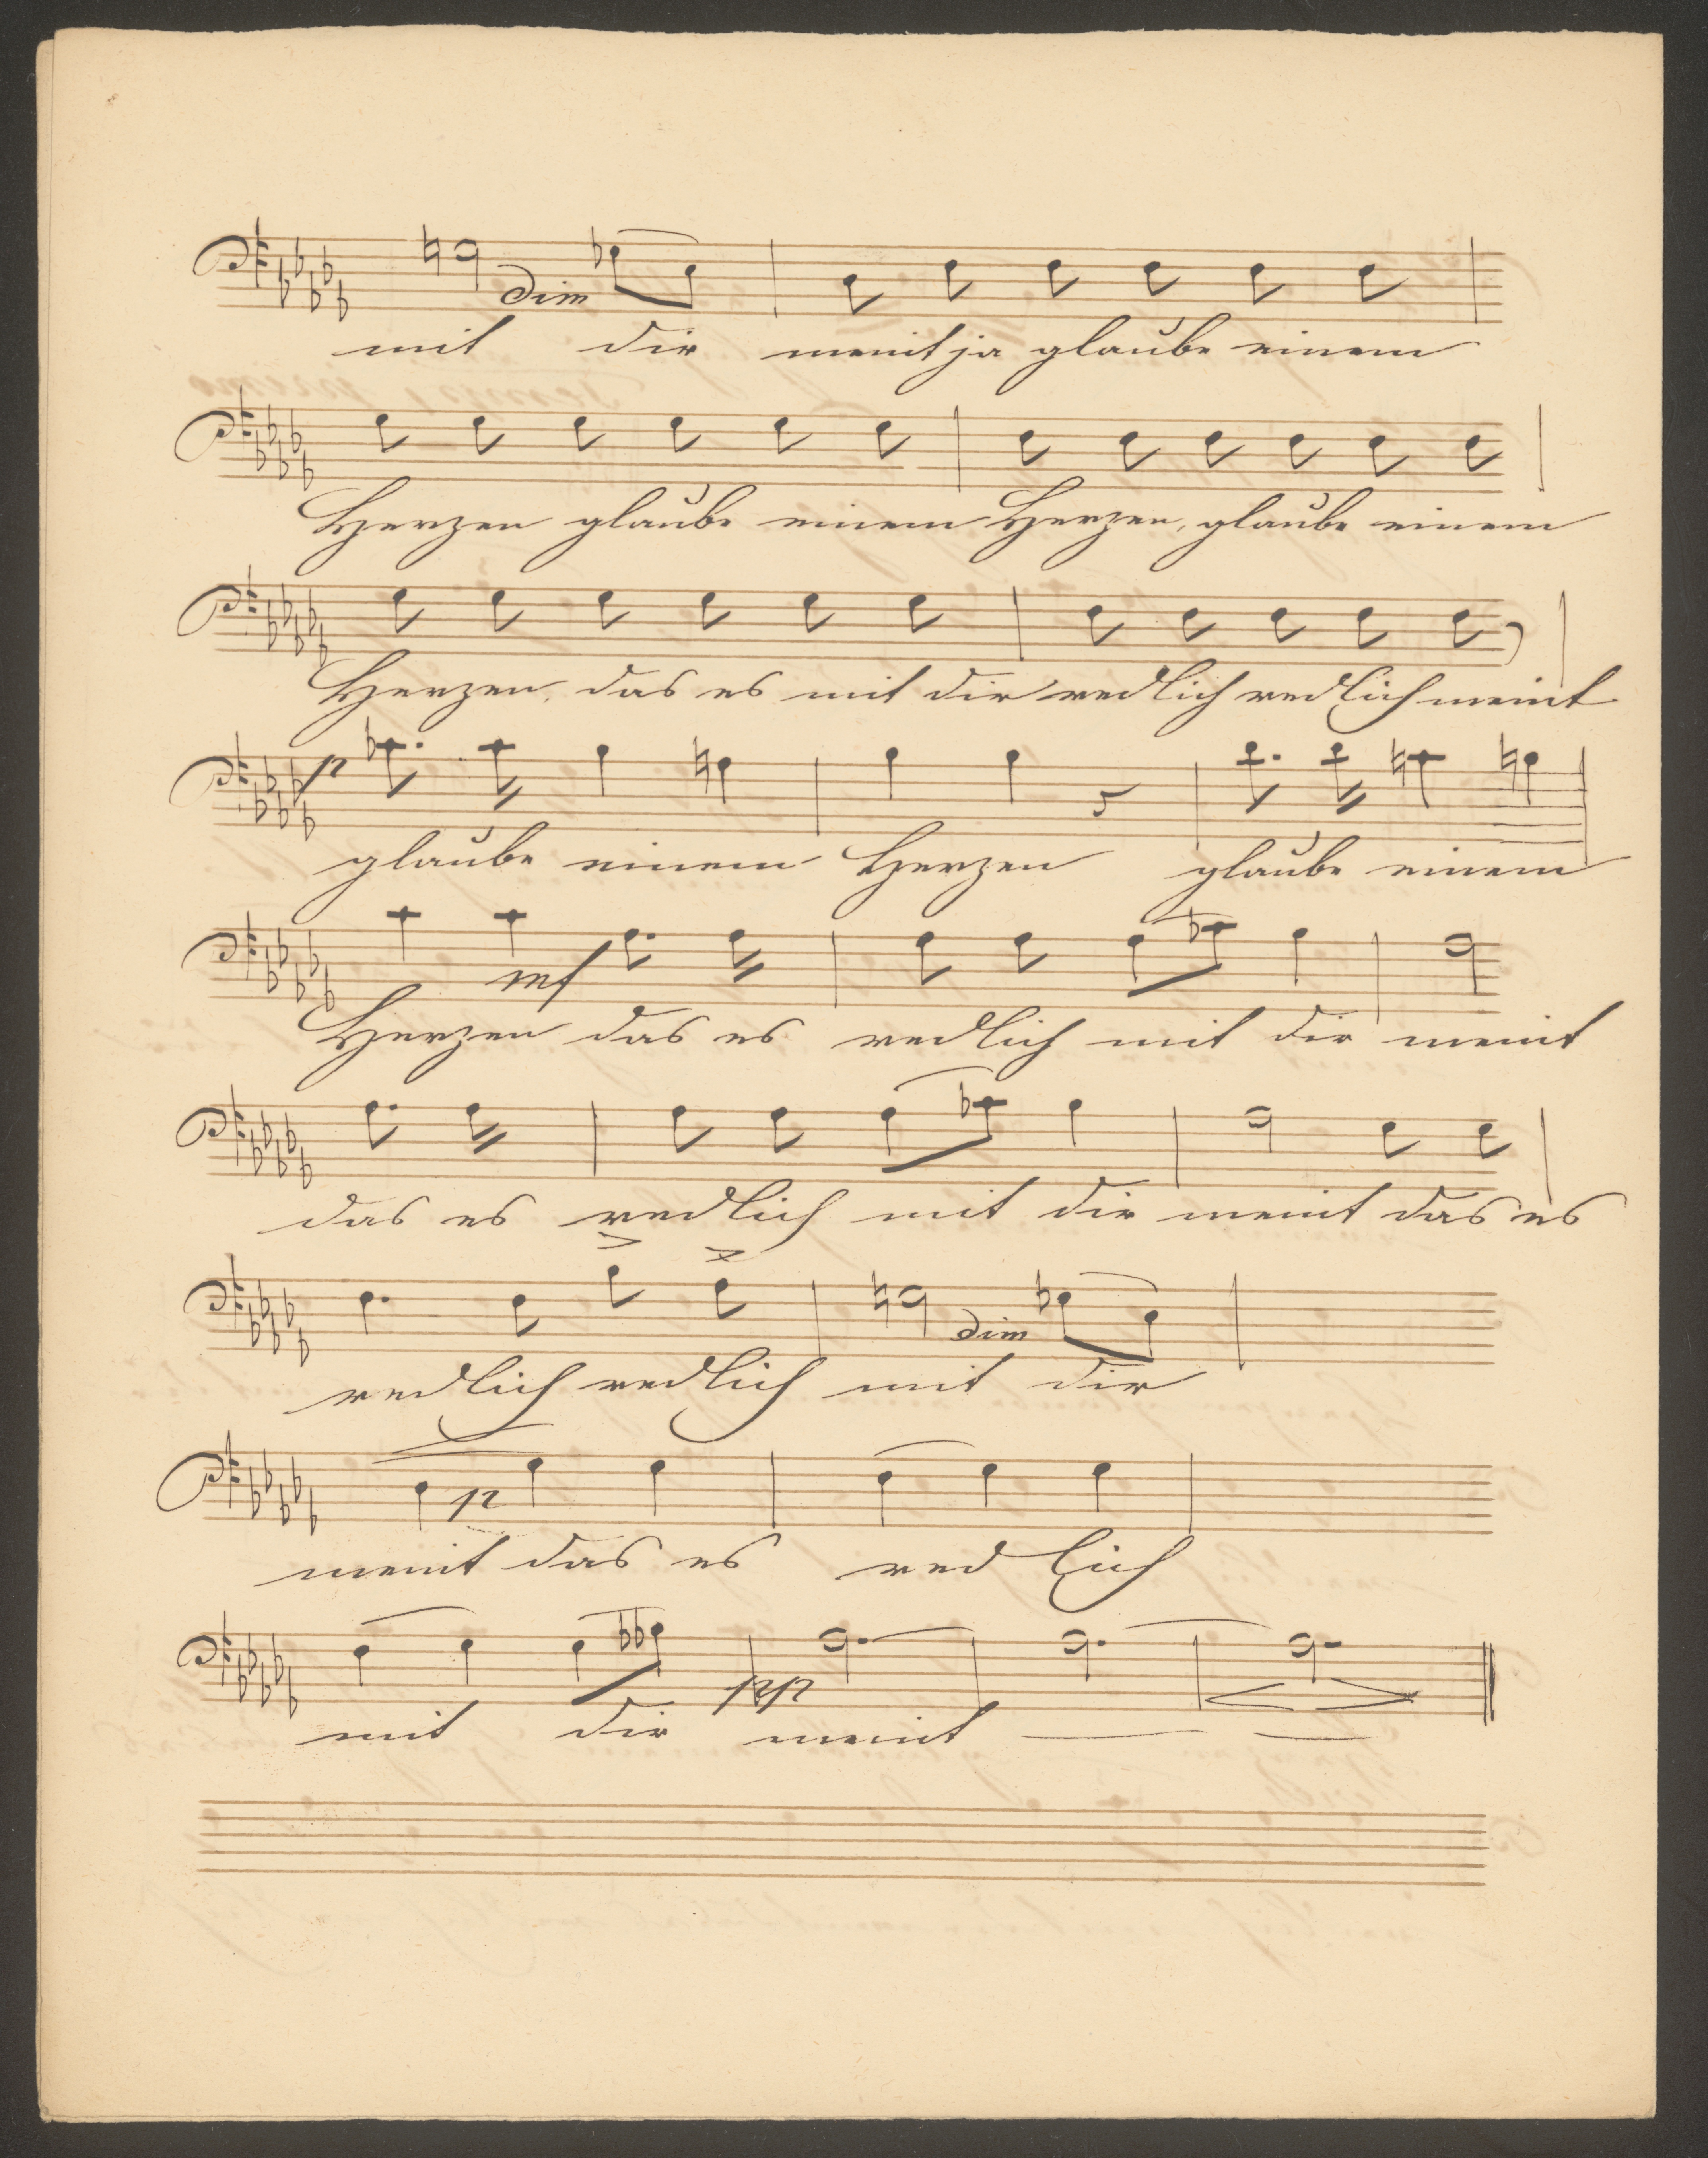 dim
mit dir meint ja glaube einem
Herzen glaube einem Herzen, glaube einem
Herzen, das es mit dir redlich redlich meint
p
glaube einem Herzen glaube einem
mf
Herzen das es redlich mit dir meint
das es redlich mit dir meint das es
dim
redlich redlich mit dir
p
meint das es redlich
pp
mit dir meint